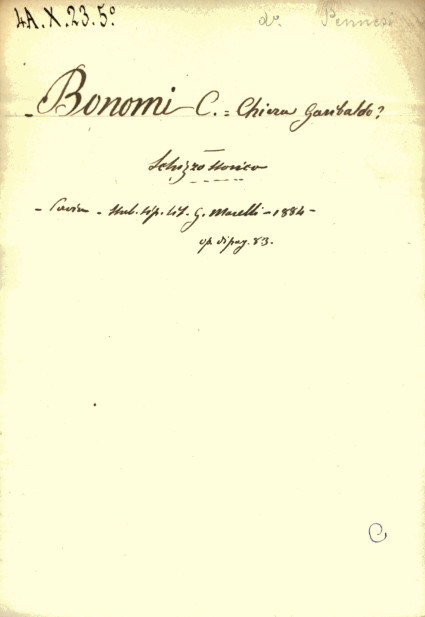 4A.X.23.5º
do. Pennesi
- Bonomi C. = Chi era Garibaldo?
Schizzo storico
- Pavia - Stab. tip. lit. G. Marelli - 1884 -
op. di pag. 83.
C